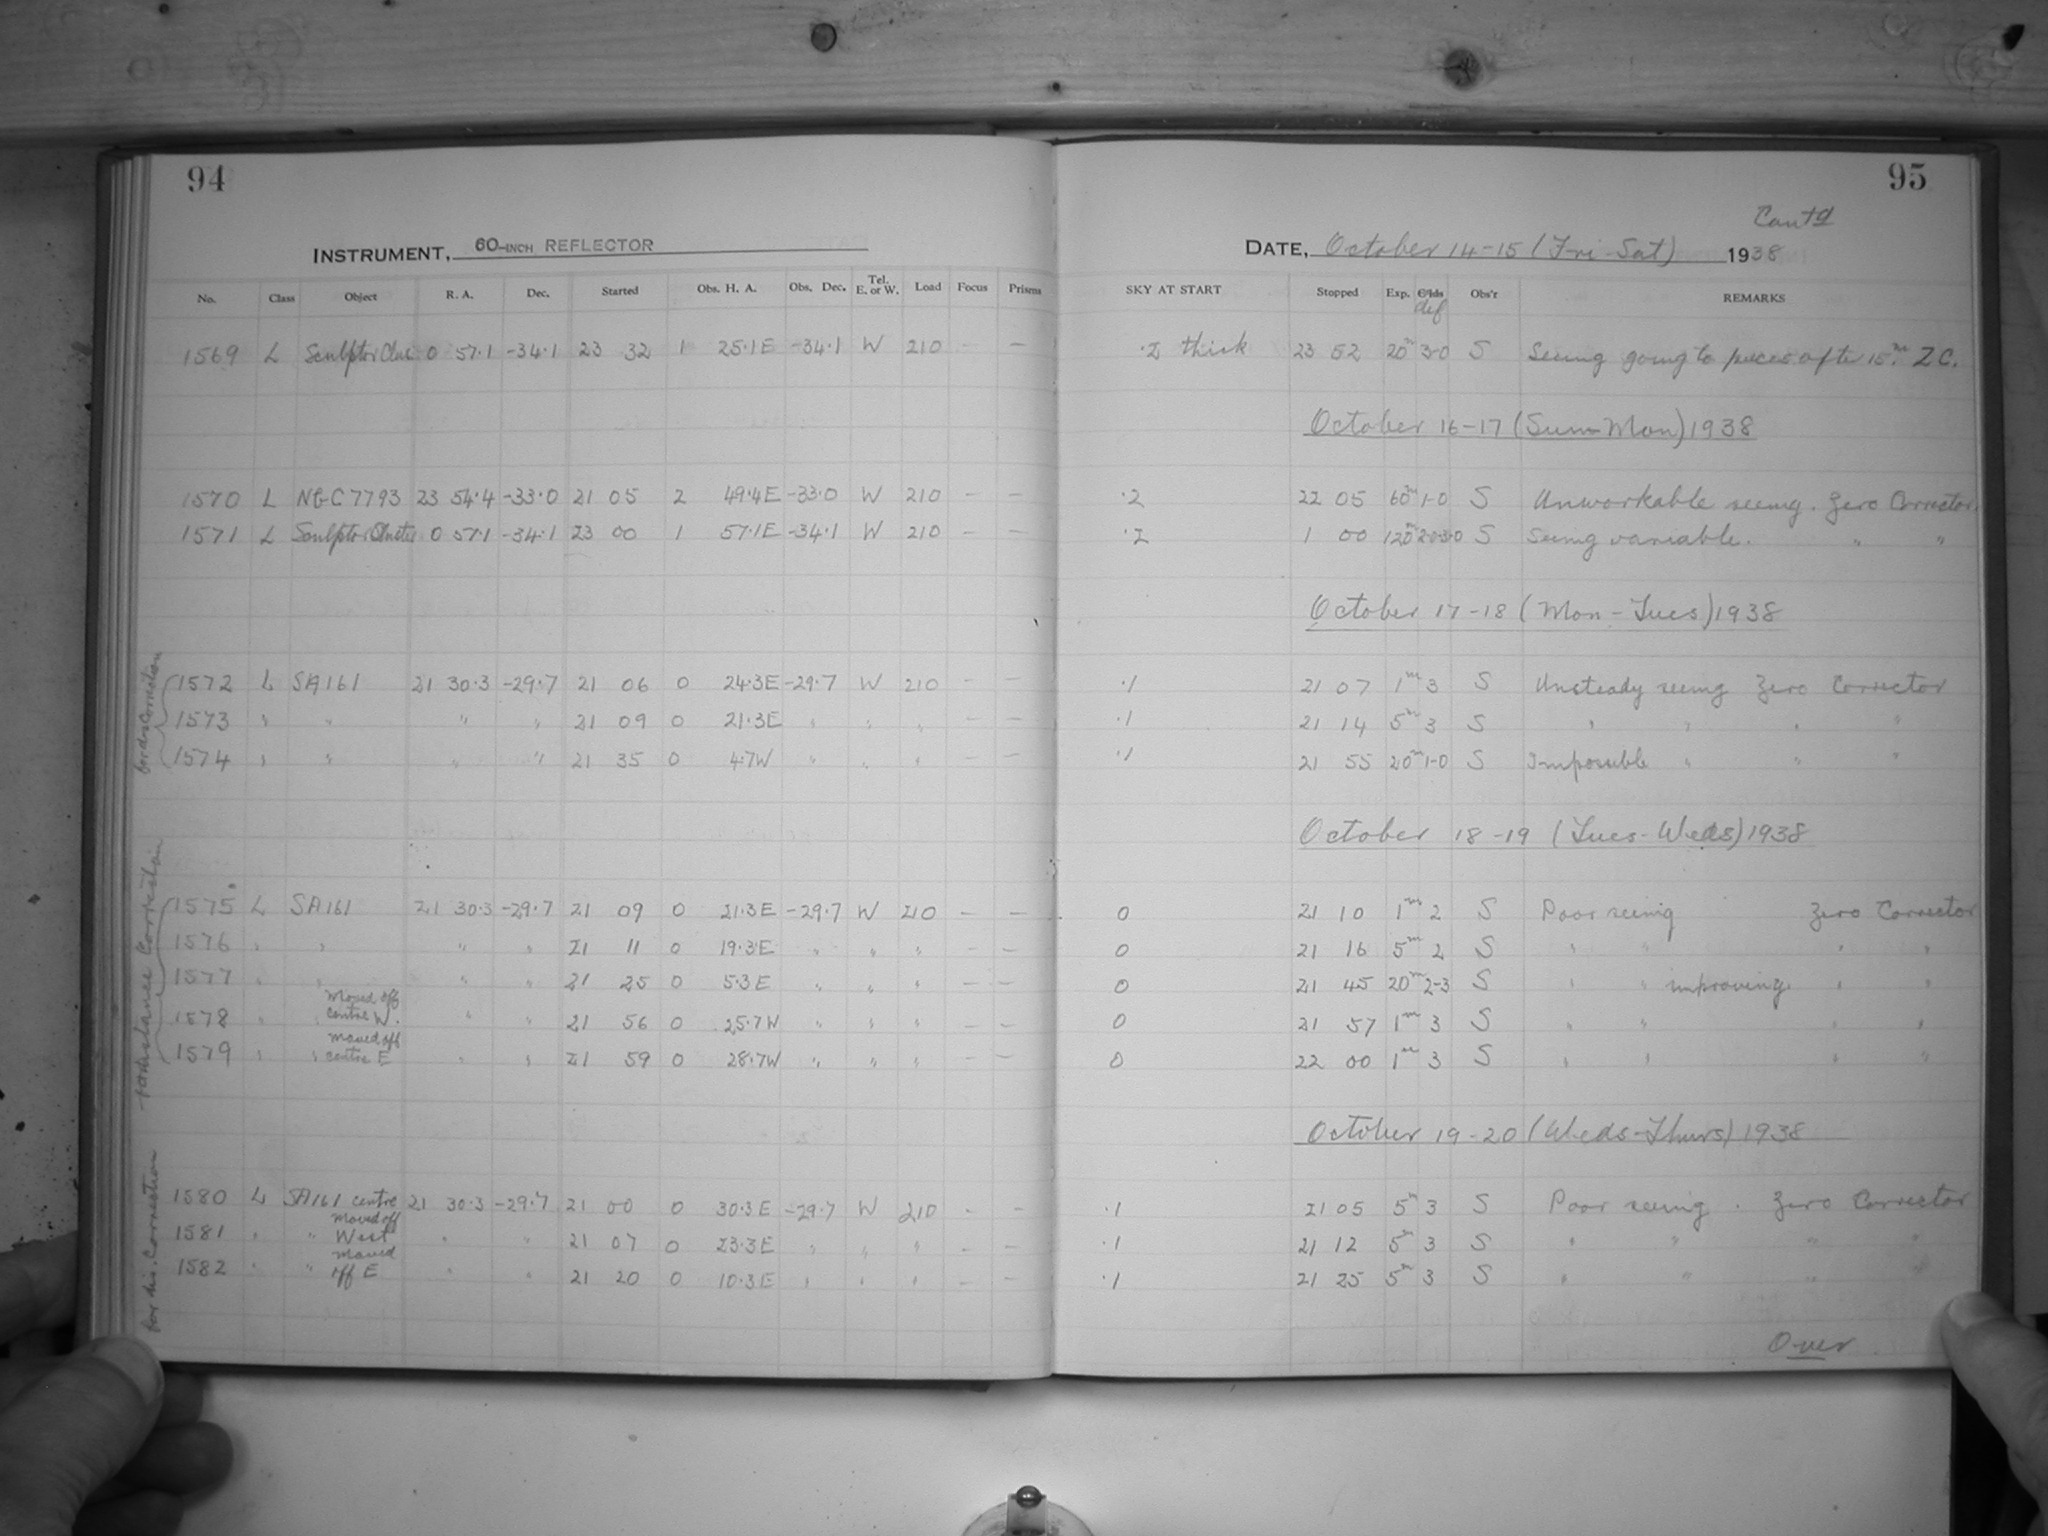 94
INSTRUMENT, 60-INCH REFLECTOR
No. Class Object R. A. Dec. Started Obs. H. A. Obs. Dec. Tel. E. or W. Load Focus Prisms
1569 L Sculptor Clus 0 57.1 -34.1 23 32 1 25.1E -34.1 W 210 - -
1570 L NGC7793 23 54.4 -33.0 21 05 2 49.4E -33.0 W 210 - -
1571 L Sculptor Cluster 0 57.1 -34.1 23 00 1 57.1E -34.1 W 210 - -
1572 L SA161 21 30.3 -29.7 21 06 0 24.3E -29.7 W 210 - -
1573 " " " " 21 09 0 21.3E " " " - -
1574 " " " " 21 35 0 4.7W " " " - -
1575 L SA161 21 30.3 -29.7 21 09 0 21.3E -29.7 W 210 - -
1576 " " " " 21 11 0 19.3E " " " - -
1577 " " " " 21 25 0 5.3E " " " - -
1578 " " Moved off centre W. " " 21 56 0 25.7W " " " - -
1579 " " moved off centre E " " 21 59 0 28.7W " " " - -
1580 L SA161 centre 21 30.3 -29.7 21 00 0 30.3E -29.7 W 210 - -
1581 " " Moved off West " " 21 07 0 23.3E " " " - -
1582 " " moved off E " " 21 20 0 10.3E " " " - -
for dis. Correction
for distance Correction
for dis. Correction
95
Contd
DATE, October 14-15 (Fri-Sat) 1938
SKY AT START Stopped Exp. def Obs'r REMARKS
.2 thick 23 52 20m 3-0 S Seeing going to pieces after 15m. Z C.
October 16-17 (Sun-Mon) 1938
.2 22 05 60m 1-0 S Unworkable seeing. Zero Corrector
.2 1 00 120m 2-0-3-0 S Seeing variable. " "
October 17-18 (Mon-Tues) 1938
.1 21 07 1m 3 S Unsteady seeing Zero Corrector
.1 21 14 5m 3 S " " " "
.1 21 55 20m 1-0 S Impossible " " "
October 18-19 (Tues-Weds) 1938
0 21 10 1m 2 S Poor seeing Zero Corrector
0 21 16 5m 2 S " " " "
0 21 45 20m 2-3 S " " improving. " "
0 21 57 1m 3 S " " " "
0 22 00 1m 3 S " " " "
October 19-20 (Weds-Thurs) 1938
.1 21 05 5m 3 S Poor seeing. Zero Corrector
.1 21 12 5m 3 S " " " "
.1 21 25 5m 3 S " " " "
Over